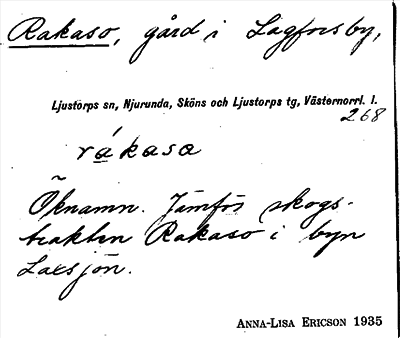 Rakaso, gård i Lagforsby,
Ljustorps sn, Njurunda, Sköns och Ljustorps tg, Västernorrl. l.
268
rákasa
Öknamn. Jämför skogs-
trakten Rakaso i byn
Laxsjön.
ANNA-LISA ERICSON 1935